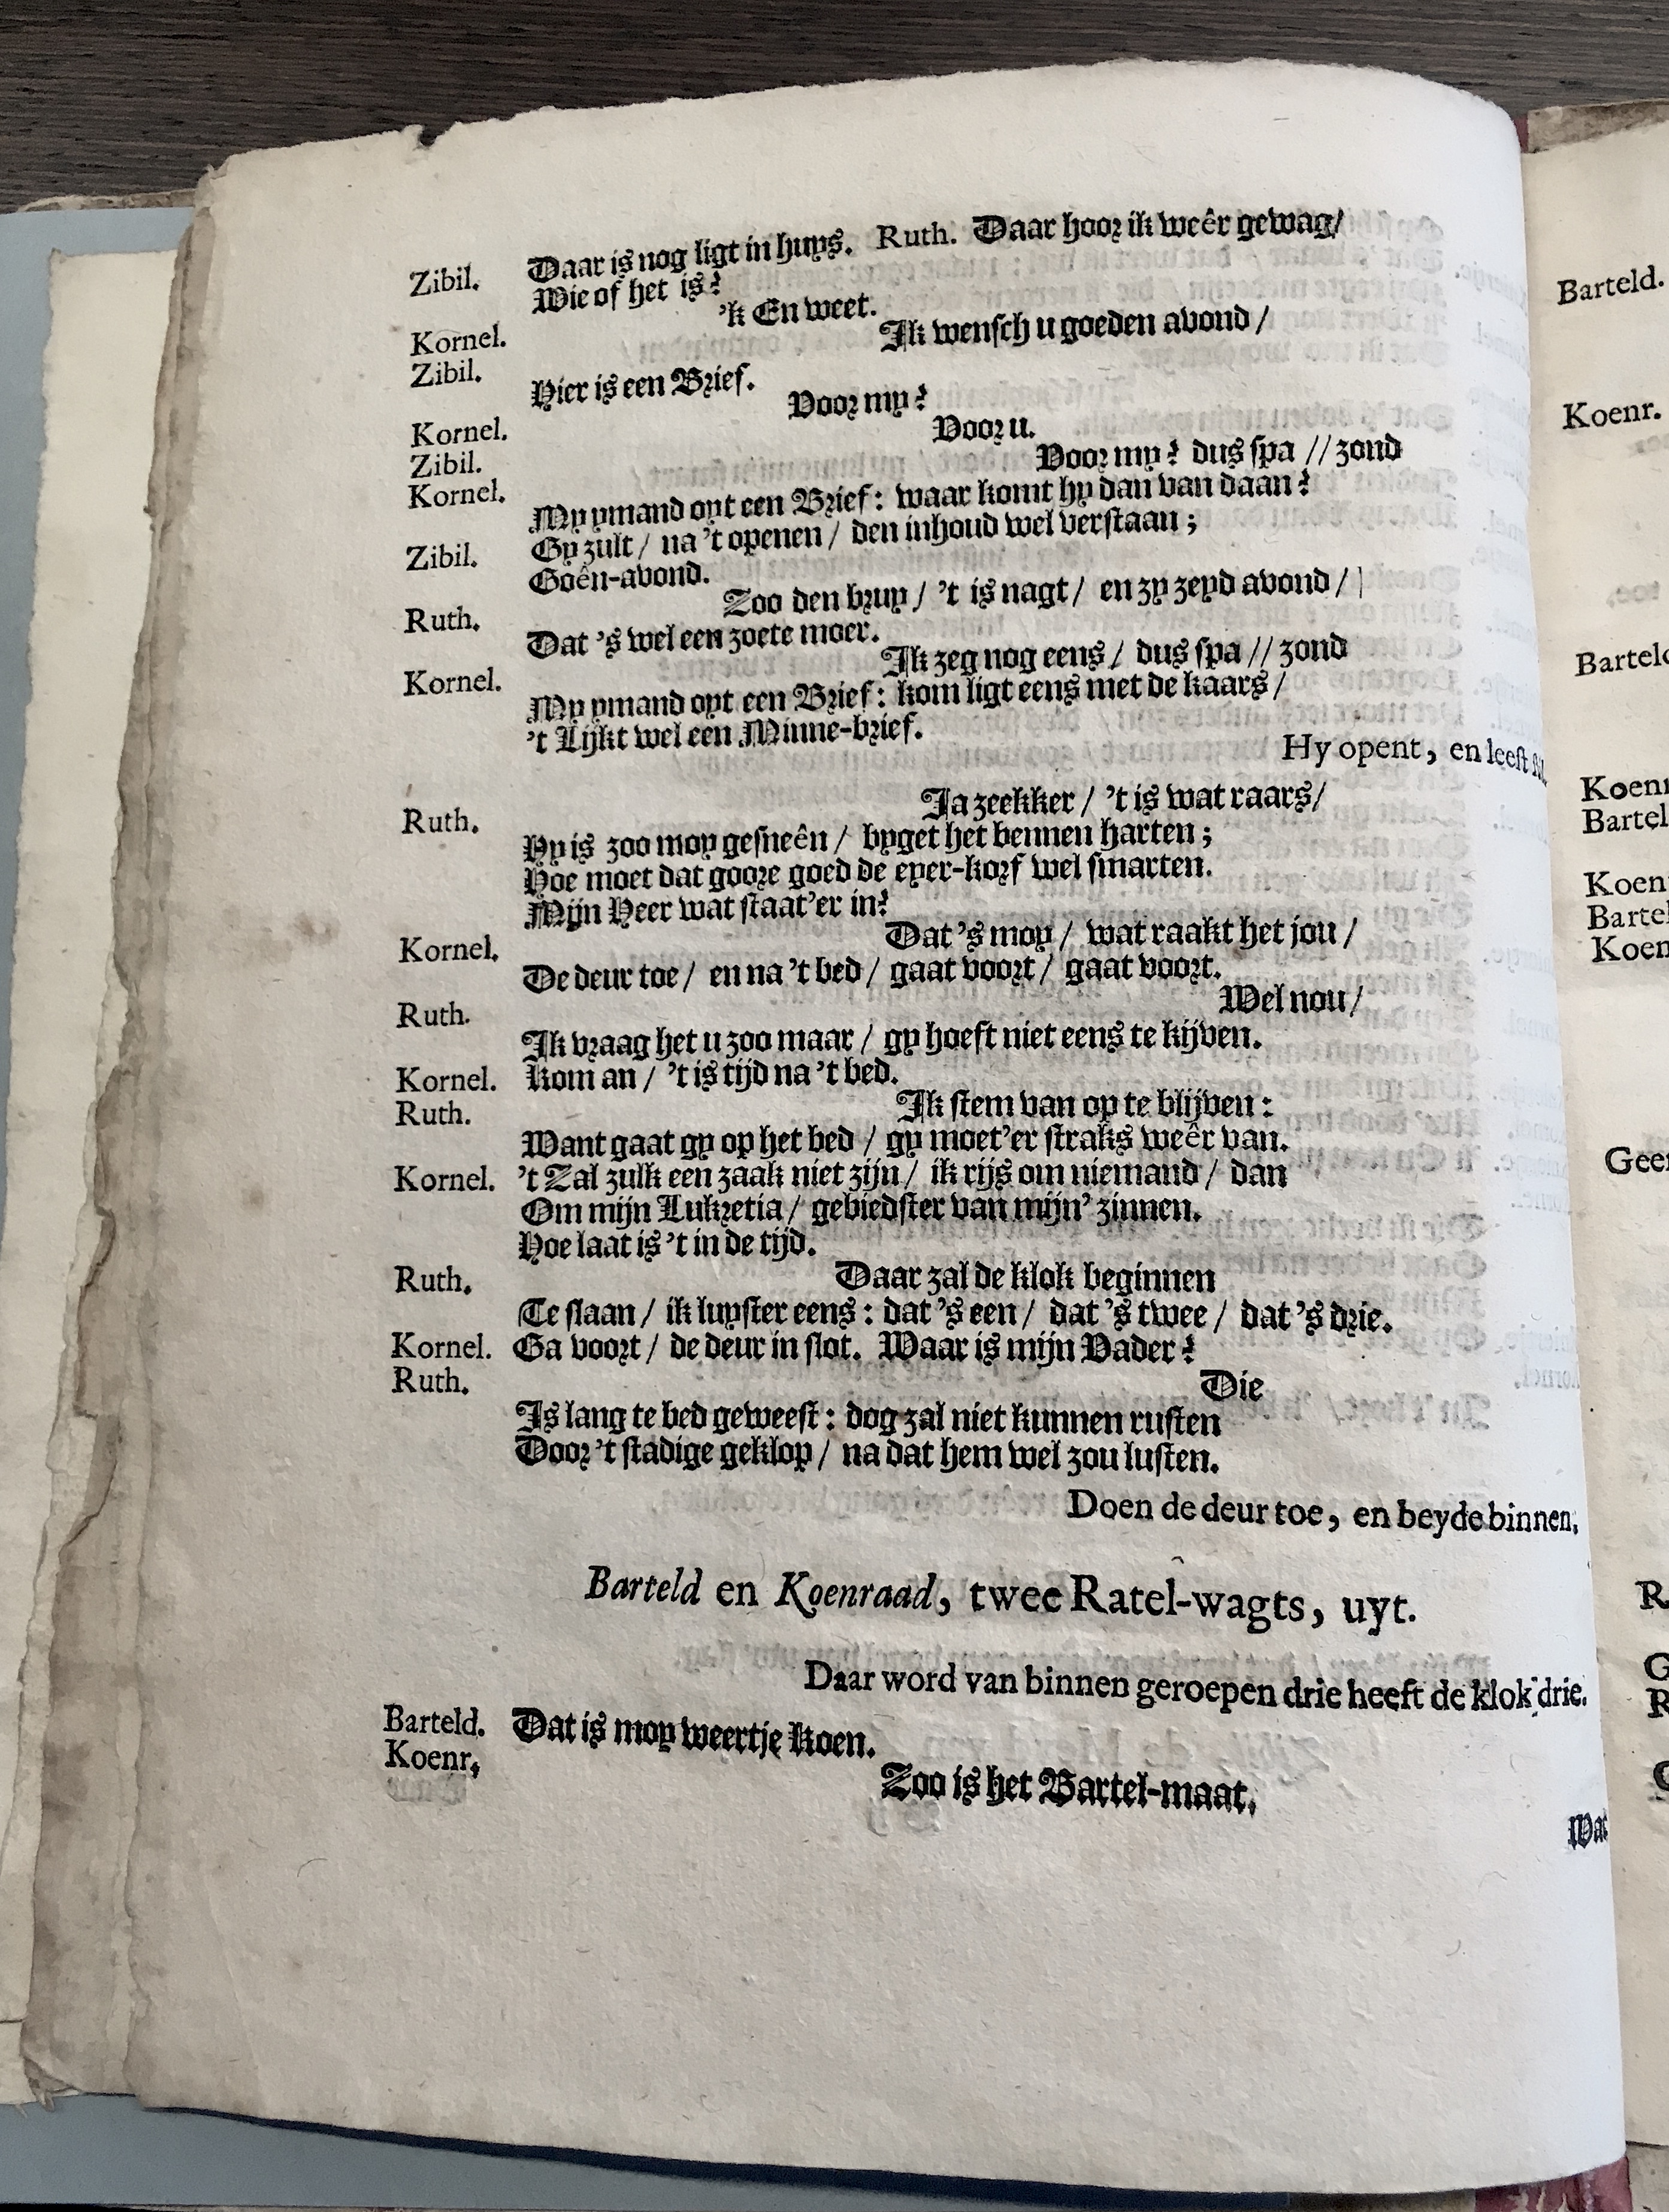 Zibil. Daar is nog ligt in huys. Ruth. Daar hoor ik weêr gewag/
Wie of het is?
Kornel. 'k En weet.
Zibil. Ik wensch u goeden avond /
Hier is een Brief.
Kornel. Voor my?
Zibil. Voor u.
Kornel. Voor my? dus spa // zond
My ymand oyt een Brief: waar komt hy dan van daan?
Zibil. Gy zult / na 't openen / den inhoud wel verstaan;
Goên-avond.
Ruth. Zoo den bruy / 't is nagt / en zy zeyd avond /
Dat 's wel een zoete moer.
Kornel. Ik zeg nog eens / dus spa // zond
My ymand oyt een Brief: kom ligt eens met de kaars /
't Lijkt wel een Minne-brief.
Hy opent, en leest
Ruth. Ja zeekker / 't is wat raars/
Hy is zoo moy gesneên / byget het bennen harten;
Hoe moet dat goore goed de eyer-korf wel smarten.
Mijn Heer wat staat'er in?
Kornel. Dat 's moy / wat raakt het jou /
De deur toe / en na 't bed / gaat voort / gaat voort.
Ruth. Wel nou /
Ik vraag het u zoo maar / gy hoeft niet eens te kijven.
Kornel. Kom an / 't is tijd na 't bed.
Ruth. Ik stem van op te blijven:
Want gaat gy op het bed / gy moet'er straks weêr van.
Kornel. 't Zal zulk een zaak niet zijn / ik rijs om niemand / dan
Om mijn Lukretia / gebiedster van mijn' zinnen.
Hoe laat is 't in de tijd.
Ruth. Daar zal de klok beginnen
Te slaan / ik luyster eens: dat 's een / dat 's twee / dat 's drie.
Kornel. Ga voort / de deur in slot. Waar is mijn Vader?
Ruth. Die
Is lang te bed geweest: dog zal niet kunnen rusten
Door 't stadige geklop / na dat hem wel zou lusten.
Doen de deur toe, en beyde binnen.
Barteld en Koenraad, twee Ratel-wagts, uyt.
Daar word van binnen geroepen drie heeft de klok drie.
Barteld. Dat is moy weertje Koen.
Koenr. Zoo is het Bartel-maat.
Barteld.
Koenr.